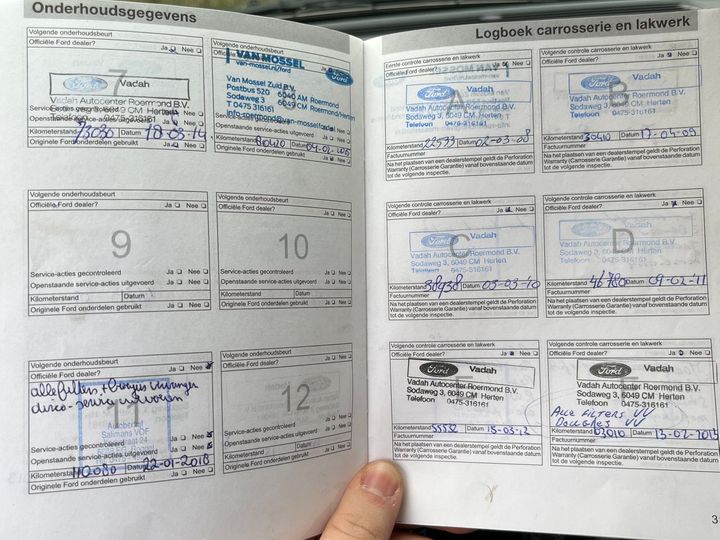 Onderhoudsgegevens
Volgende onderhoudsbeurt
Officiële Ford dealer? Ja Nee
7
Ford Vadah
Vadah Autocenter Roermond B.V.
Sodaweg 3, 6049 CM Herten
Telefoon 0475-316161
Service-acties
Openstaande service-acties uitgevoerd
Kilometerstand 73080 Datum 18-03-14
Originele Ford onderdelen gebruikt Ja Nee
Volgende onderhoudsbeurt
Officiële Ford dealer? Ja Nee
VAN MOSSEL
van-mossel.nl/ford
Ford
Van Mossel Zuid B.V.
Postbus 520 6040 AM Roermond
Sodaweg 3 6049 CM Herten
T 0475 316161
info-roermond@van-mossel-ford.nl
Openstaande service-acties uitgevoerd
Kilometerstand Datum 04-02
Originele Ford onderdelen gebruikt Ja Nee
Volgende onderhoudsbeurt
Officiële Ford dealer? Ja Nee
9
Service-acties gecontroleerd Ja Nee
Openstaande service-acties uitgevoerd Ja Nee
Kilometerstand Datum
Originele Ford onderdelen gebruikt Ja Nee
Volgende onderhoudsbeurt
Officiële Ford dealer? Ja Nee
10
Service-acties gecontroleerd Ja Nee
Openstaande service-acties uitgevoerd Ja Nee
Kilometerstand Datum
Originele Ford onderdelen gebruikt Ja Nee
Volgende onderhoudsbeurt
Officiële Ford dealer? Ja Nee
alle filters +
11
Autobedrijf
Salimans VOF
Service-acties gecontroleerd Ja Nee
Openstaande service-acties uitgevoerd Ja Nee
Kilometerstand 110080 Datum 22-01-2018
Originele Ford onderdelen gebruikt Ja Nee
Volgende onderhoudsbeurt
Officiële Ford dealer? Ja Nee
12
Service-acties gecontroleerd Ja Nee
Openstaande service-acties uitgevoerd Ja Nee
Kilometerstand Datum
Originele Ford onderdelen gebruikt Ja Nee
Logboek carrosserie en lakwerk
Eerste controle carrosserie en lakwerk
Officiële Ford dealer? Ja Nee
A
Ford Vadah
Vadah Autocenter Roermond B.V.
Sodaweg 3, 6049 CM Herten
Telefoon 0475-316161
Kilometerstand 22533 Datum 02-03-08
Factuurnummer
Na het plaatsen van een dealerstempel geldt de Perforation
Warranty (Carrosserie Garantie) vanaf bovenstaande datum
tot de volgende inspectie.
Volgende controle carrosserie en lakwerk
Officiële Ford dealer? Ja Nee
B
Ford Vadah
Vadah Autocenter Roermond B.V.
Sodaweg 3, 6049 CM Herten
Telefoon 0475-316161
Kilometerstand 30410 Datum 17-04-09
Factuurnummer
Na het plaatsen van een dealerstempel geldt de Perforation
Warranty (Carrosserie Garantie) vanaf bovenstaande datum
tot de volgende inspectie.
Volgende controle carrosserie en lakwerk
Officiële Ford dealer? Ja Nee
C
Ford Vadah
Vadah Autocenter Roermond B.V.
Sodaweg 3, 6049 CM Herten
Telefoon 0475-316161
Kilometerstand 38938 Datum 05-03-10
Factuurnummer
Na het plaatsen van een dealerstempel geldt de Perforation
Warranty (Carrosserie Garantie) vanaf bovenstaande datum
tot de volgende inspectie.
Volgende controle carrosserie en lakwerk
Officiële Ford dealer? Ja Nee
D
Ford Vadah
Vadah Autocenter Roermond B.V.
Sodaweg 3, 6049 CM Herten
Telefoon 0475-316161
Kilometerstand 46780 Datum 09-02-11
Factuurnummer
Na het plaatsen van een dealerstempel geldt de Perforation
Warranty (Carrosserie Garantie) vanaf bovenstaande datum
tot de volgende inspectie.
Volgende controle carrosserie en lakwerk
Officiële Ford dealer? Ja Nee
Ford Vadah
Vadah Autocenter Roermond B.V.
Sodaweg 3, 6049 CM Herten
Telefoon 0475-316161
Kilometerstand 55532 Datum 15-03-12
Factuurnummer
Na het plaatsen van een dealerstempel geldt de Perforation
Warranty (Carrosserie Garantie) vanaf bovenstaande datum
tot de volgende inspectie.
Volgende controle carrosserie en lakwerk
Officiële Ford dealer? Ja Nee
Ford Vadah
Vadah Autocenter Roermond B.V.
Sodaweg 3, 6049 CM Herten
Telefoon 0475-316161
ALLE FILTERS VV
BOUGIES VV
Kilometerstand 63010 Datum 13-02-2013
Factuurnummer
Na het plaatsen van een dealerstempel geldt de Perforation
Warranty (Carrosserie Garantie) vanaf bovenstaande datum
tot de volgende inspectie.
3